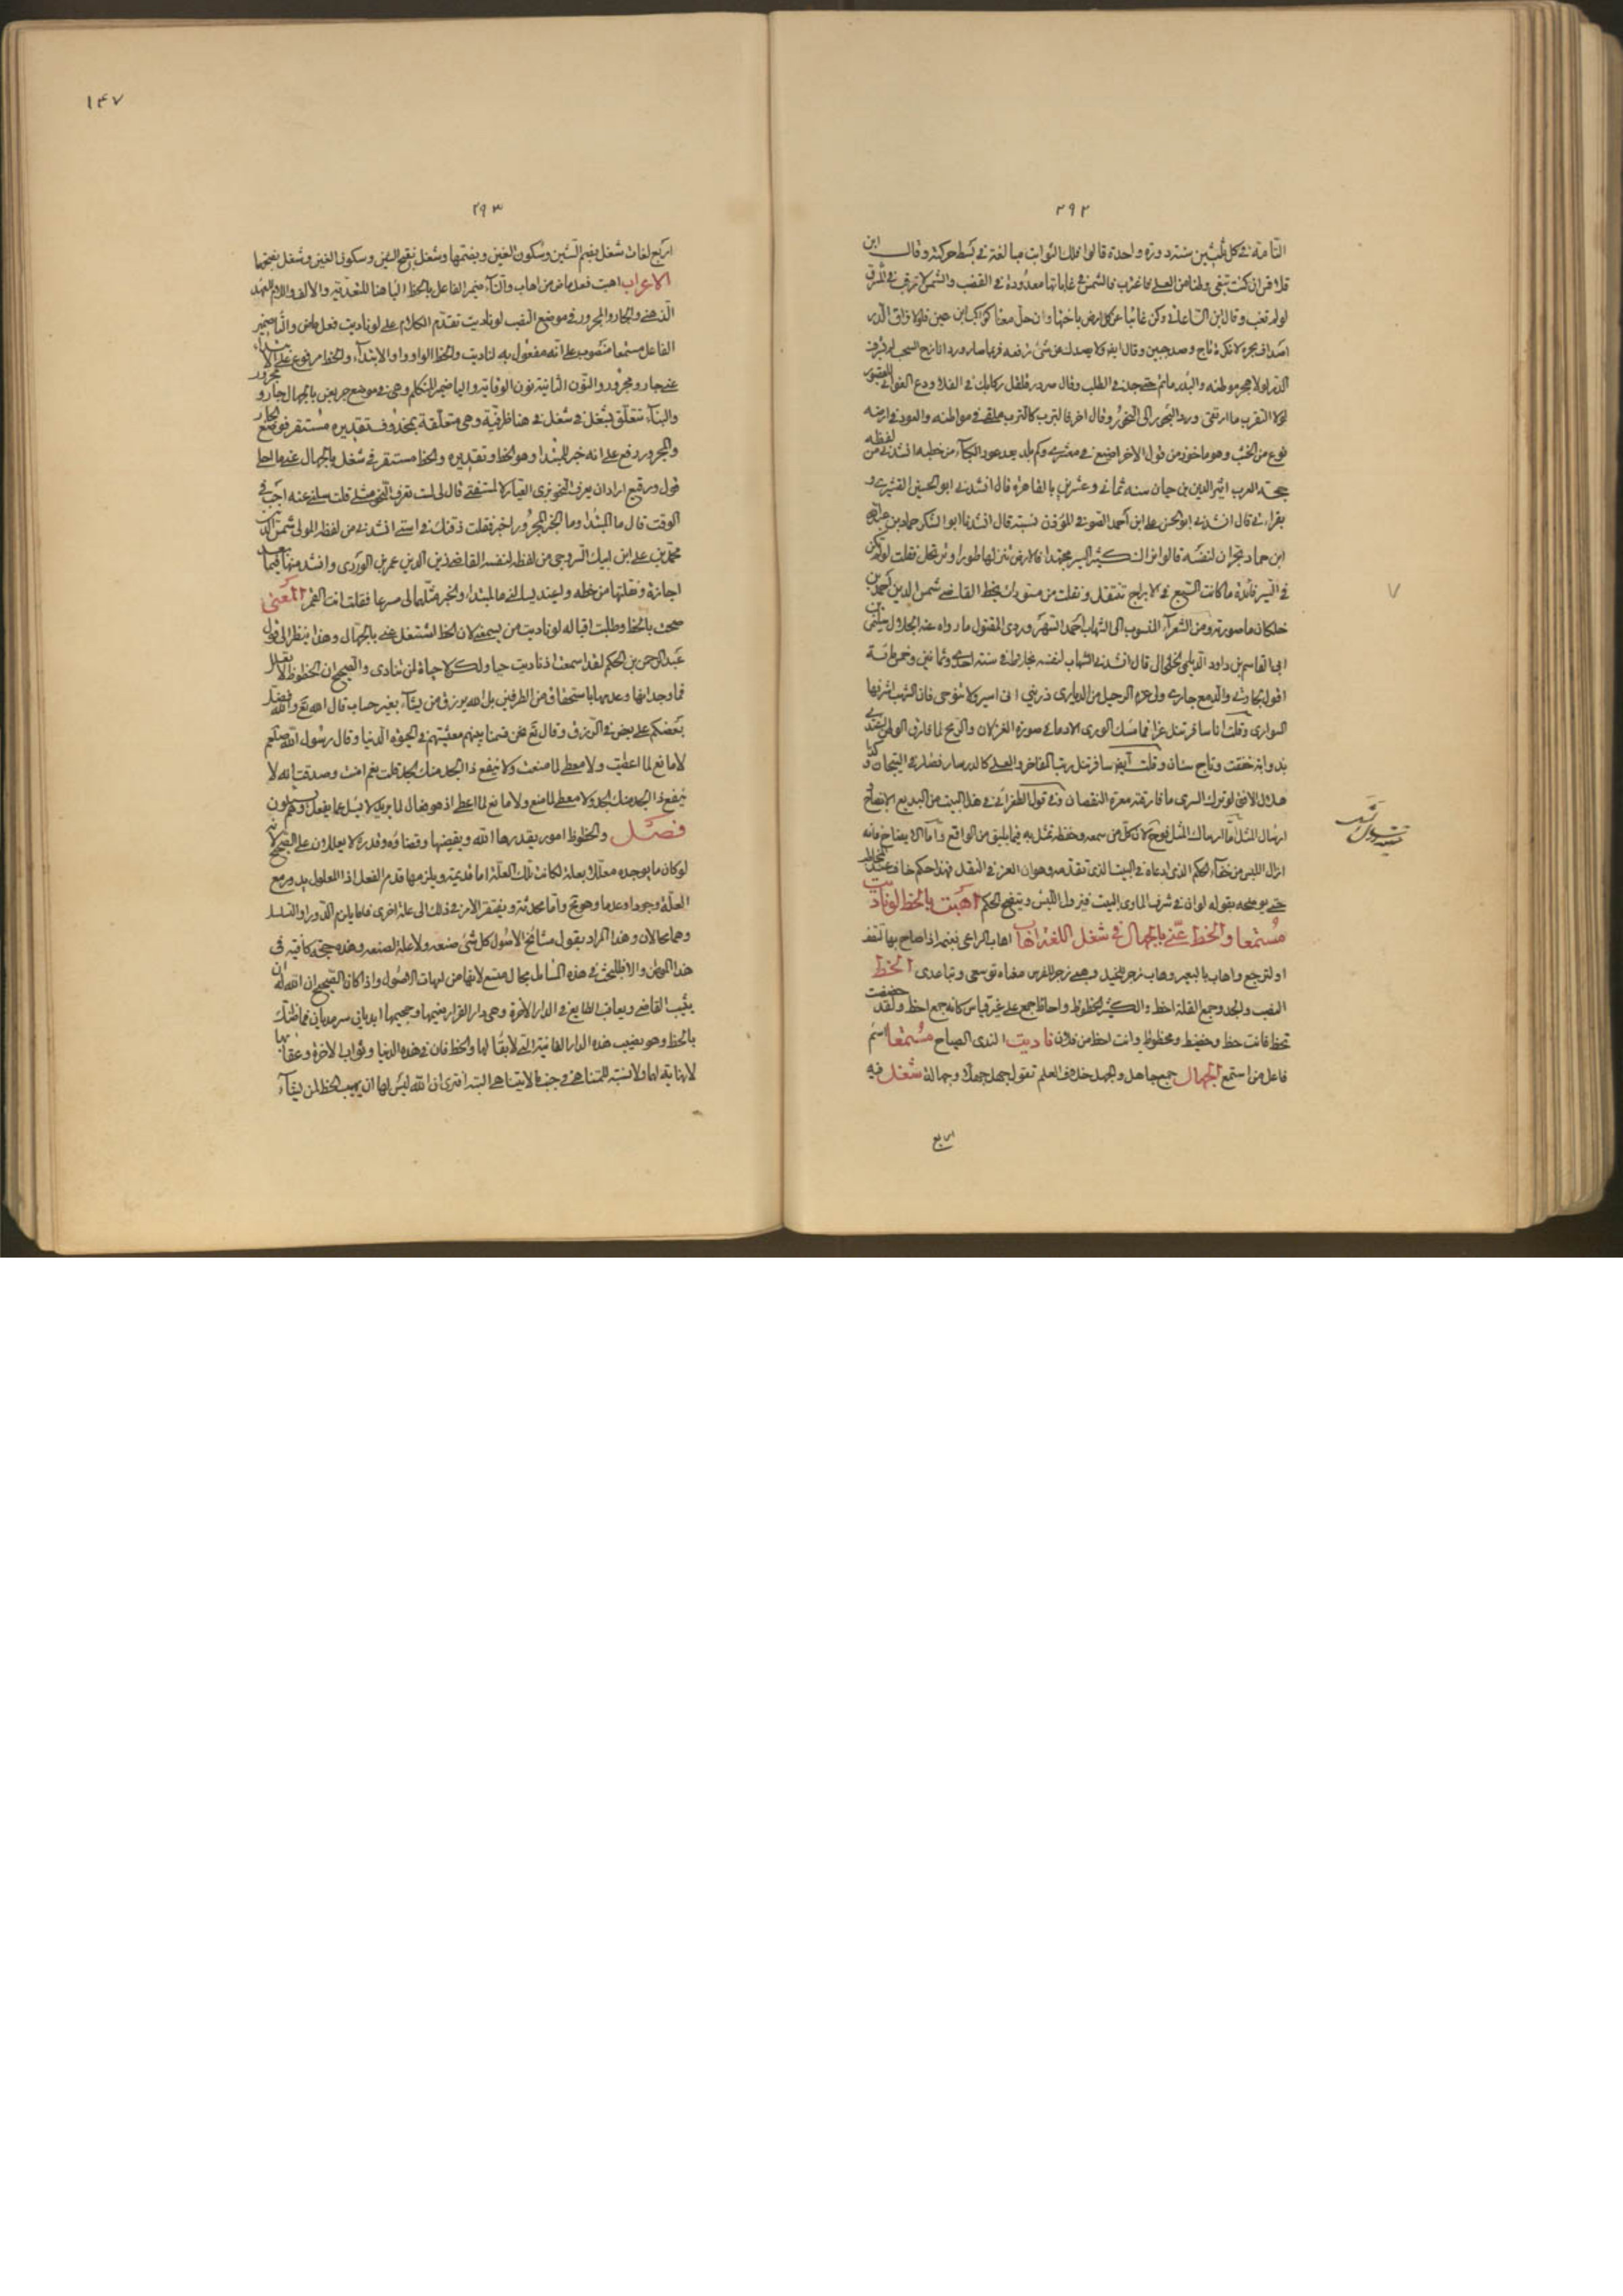 ٢٩٢
التامة في كل ثلثين سنة دورة واحدة قالوا فلك الثوابت مبالغة في بسط حركته وقال ابن
قلاقس ان كنت تبغى وطنا من العلى فاغترب فالشمس في غاباتها معدودة في القضب والشمس لا ترقب في الشرق
لو لم تغب وقال ابن الساعاتي وكن غائبا عن كل ارض باختها وان حل معناك ابن حين فلولا فراق الدر
اصداف بحره لا نكدة تاج وصدجبين وقال ايضا ولا يصدك عن شئ ترفعه فربما صار وردا نازح السحب لم يشرف
الدر لولا هجر موطنه والبدر ماتم حتى جد في الطلب وقال صردر قلقل ركابك في الفلا ودع الغوانى للقصور
لولا التقرب ما ارتقى درر البحور الى النحور وقال اخر فالترب كالترب ملقى في مواطنه والعود في ارضه
نوع من الخشب وهو ماخوذ من قول الاخر اضيع في معشري وكم بلد يعد عود الكباء من خطبه انشدني من لفظه
حجة العرب اثير الدين بن حيان سنه ثمانى وعشرين بالقاهرة قال انشدني ابو الحسين القشيري و
بقراءتي قال انشدني ابو الحسن على ابن احمد الصوفي المؤذن بسبتة قال انشدنا ابو الشكر حماد بن
ابن حماد بحران لنفسه قالوا نراك كثير السير مجتهدا في الارض تنزلها طورا وترتحل فقلت لو لم يكن
في السير فائدة ما كانت السبع في الابراج تنتقل ونقلت من مسودات بخط القاضي شمس الدين احمد بن
خلكان ما صورته ومن الشعر المنسوب الى الشهاب احمد السهروردى المقتول ما رواه عنه الجلال
ابى القاسم بن داود الديلمى الخلخالى قال انشدني الشهاب لنفسه بخارطا في سنته احدى وثمانين وخمسمائة
اقول لجارتي والدمع جارى ولى عزم الرحيل من الديارى ذرينى ان اسير ولا تنوحى فان الشهب اشرفها
السوارى وقلت انا سافر تنل عزا فما مسك الورى الا دما في صورة الغزلان والريح لما فارق الوطن اغتدى
بذوابة خفقت وتاج سنان وقلت ايضا سافر تنل رتب المفاخر والعلى كالدر سار فصار في التيجان و كذا
هلال الافق لو ترك السرى ما فارقته معرة النقصان وفي قول الطغرائي في هذا البيت من البديع الايضاح
ارسال المثل اما ارسال المثل فيوضح لان كل من سمعه وحفظه تمثل به فيما يليق من الواقع واما الايضاح فانه
ازال اللبس من خفاء الحكم الذى ادعاه في البيت الذى تقدمه وهو ان العز في النقل فهذا حكم خاف
حتى يوضحه بقوله لو ان في شرف الماوى البيت فيزول اللبس ويتضح الحكم اهبت بالحظ لو ناديت
مستمعا والحظ عنى بالجهال في شغل اللغة اهاب اهاب الراعى بغنمه اذا صاح بها لتقف
او لترجع واهاب بالبعير وهاب زجر للخيل وهبى زجر للفرس معناه توسعى وتباعدى الحظ
النصيب والجد وجمع القلة احظ والكثير الحظوظ واحاظ جمع على غير قياس كانه جمع احظ ولقد حظظت
تحظ فانت حظ وحظيظ ومحظوظ وانت احظ من فلان ناديت الندى الصياح مستمعا اسم
فاعل من استمع الجهال جمع جاهل والجهل خلاف العلم تقول جهل جهلا وجهالة شغل فيه
اربع
١٤٧
٢٩٣
اربع لغات شغل بضم الشين وسكون الغين وبضمها وشغل بفتح الشين وسكون الغين وشغل بفتحها
الاعراب اهبت فعل ماض من اهاب والتاء ضمير الفاعل بالحظ الباء هنا للتعدية والالف واللام للعهد
الذهنى والجار والمجرور في موضع النصب لو ناديت تقدم الكلام على لو ناديت فعل ماض والتا ضمير
الفاعل مستمعا منصوب على انه مفعول به لناديت والحظ الواو واو الابتداء والحظ مرفوع على الابتداء
عنى جار ومجرور والنون الثانية نون الوقاية والياء ضمير المتكلم وهى في موضع جر بعن بالجهال جار ومجرور
والباء تتعلق بشغل في شغل في هنا ظرفية وهى متعلقة بمحذوف تقديره مستقر في موضع الجار
والمجرور رفع على انه خبر للمبتدا وهو الحظ وتقديره والحظ مستقر في شغل بالجهال عنى ما احلى
قول ورقيع اراد ان يعرف النحو بزى العيارة لا المستفتى قال لى لست تعرف النحو مثلى قلت سلنى عنه اجب في
الوقت قال ما المبتدا وما الخبر المجرور اخبر فقلت ذقنك في استى انشدني من لفظه المولى شمس الدين
محمد بن على ابن ايبك السروجى من لفظه لنفسه القاضى زين الدين عمر بن الوردى وانشد منها فيما بعد
اجازة ونقلتها من خطه واغيد يسالنى ما المبتدا والخبر مثلهما لى مسرعا فقلت انت القمر المعنى
صحت بالحظ وطلبت اقباله لو ناديت من يسمعنى لان الحظ اشتغل عنى بالجهال وهذا ينظر الى قول
عبد الرحمن بن الحكم لقد اسمعت اذ ناديت حيا ولكن لا حياة لمن تنادى والصحيح ان الحظوظ لا تعلل
فما وجدانها وعدمها باستحقاق من الطرفين بل الله يرزق من يشاء بغير حساب قال الله تع والله فضل
بعضكم على بعض في الرزق وقال تع نحن قسمنا بينهم معيشتهم في الحيوة الدنيا وقال رسول الله صلعم
لا مانع لما اعطيت ولا معطى لما منعت ولا ينفع ذا الجد منك الجد قلت نعم امنت وصدقت انه لا
ينفع ذا الجد منك الجد ولا معطى لما منع ولا مانع لما اعطى اذ هو فعال لما يريد لا يسئل عما يفعل وهم يسئلون
فصل والحظوظ امور يقدرها الله ويقضيها وقضاؤه وقدره لا يعللان على الصحيح لانه
لو كان ما يوجده معللا بعلة لكانت تلك العلة اما قديمة ويلزمها قدم الفعل اذ المعلول يدور مع
العلة وجودا وعدما وهو مح واما محدثة ويفتقر الامر في ذلك الى علة اخرى فاما يلزم الدور او التسلسل
وهما محالان وهذا المراد بقول مشائخ الاصول كل شئ صنعه ولا علة لصنعه وهذه حجة كافية في
هذا المهمن والا فللبحث في هذه المسئلة مجال متسع لانها من امهات الاصول واذا كان الصحيح ان الله له ان
يثيب العاصى ويعاقب الطايع في الدار الاخرة وهى دار القرار نعيمها وجحيمها ابديان سرمديان فما ظنك
بالحظ وهو نصيب هذه الدار الفانية التى لا بقا لها والحظ فان في هذه الدنيا وثواب الاخرة وعقابها
لا نهاية لهما ولا نسبة للمتناهى في جنب ما لا يتناهى البتة افترى ان الله ليس لها ان يهب الحظ لمن يشآء